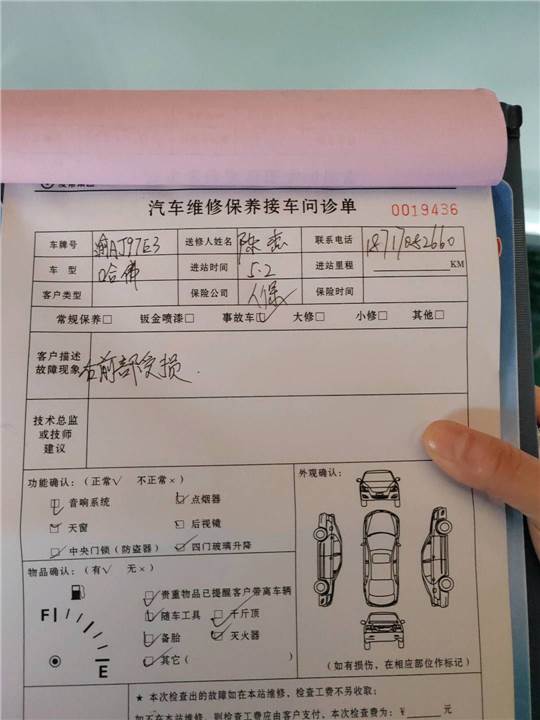 汽车维修保养接车问诊单 0019436
车牌号 渝AJ97E3 送修人姓名 陈 联系电话 18717852660
车 型 哈佛 进站时间 5.2 进站里程 KM
客户类型 保险公司 人保 保险时间
常规保养□ 钣金喷漆□ 事故车☑ 大修□ 小修□ 其他□
客户描述
故障现象 右前部受损.
技术总监
或技师
建议
功能确认:(正常√ 不正常×) 外观确认:
☑音响系统 ☑点烟器
☑天窗 ☑后视镜
☑中央门锁(防盗器) ☑四门玻璃升降
物品确认:(有√ 无×)
☑贵重物品已提醒客户带离车辆
F ☑随车工具 ☑千斤顶
☑备胎 ☑灭火器
E ☑其它( (如有损伤,在相应部位作标记)
★ 本次检查出的故障如在本站维修,检查工费不另收取;
如不在本站维修,则检查工费应由客户支付,本次检查费为:¥ 元